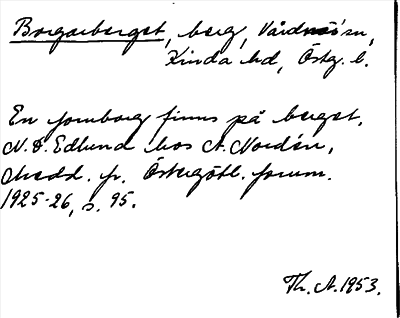 Borgarberget, berg, Vårdnäs sn,
Kinda hd, Östg. l.
En fornborg finns på berget,
N. D. Edlund hos A. Nordén,
Medd. fr. Östergötl. fornm.
1925-26, s. 95.
Th. A. 1953.